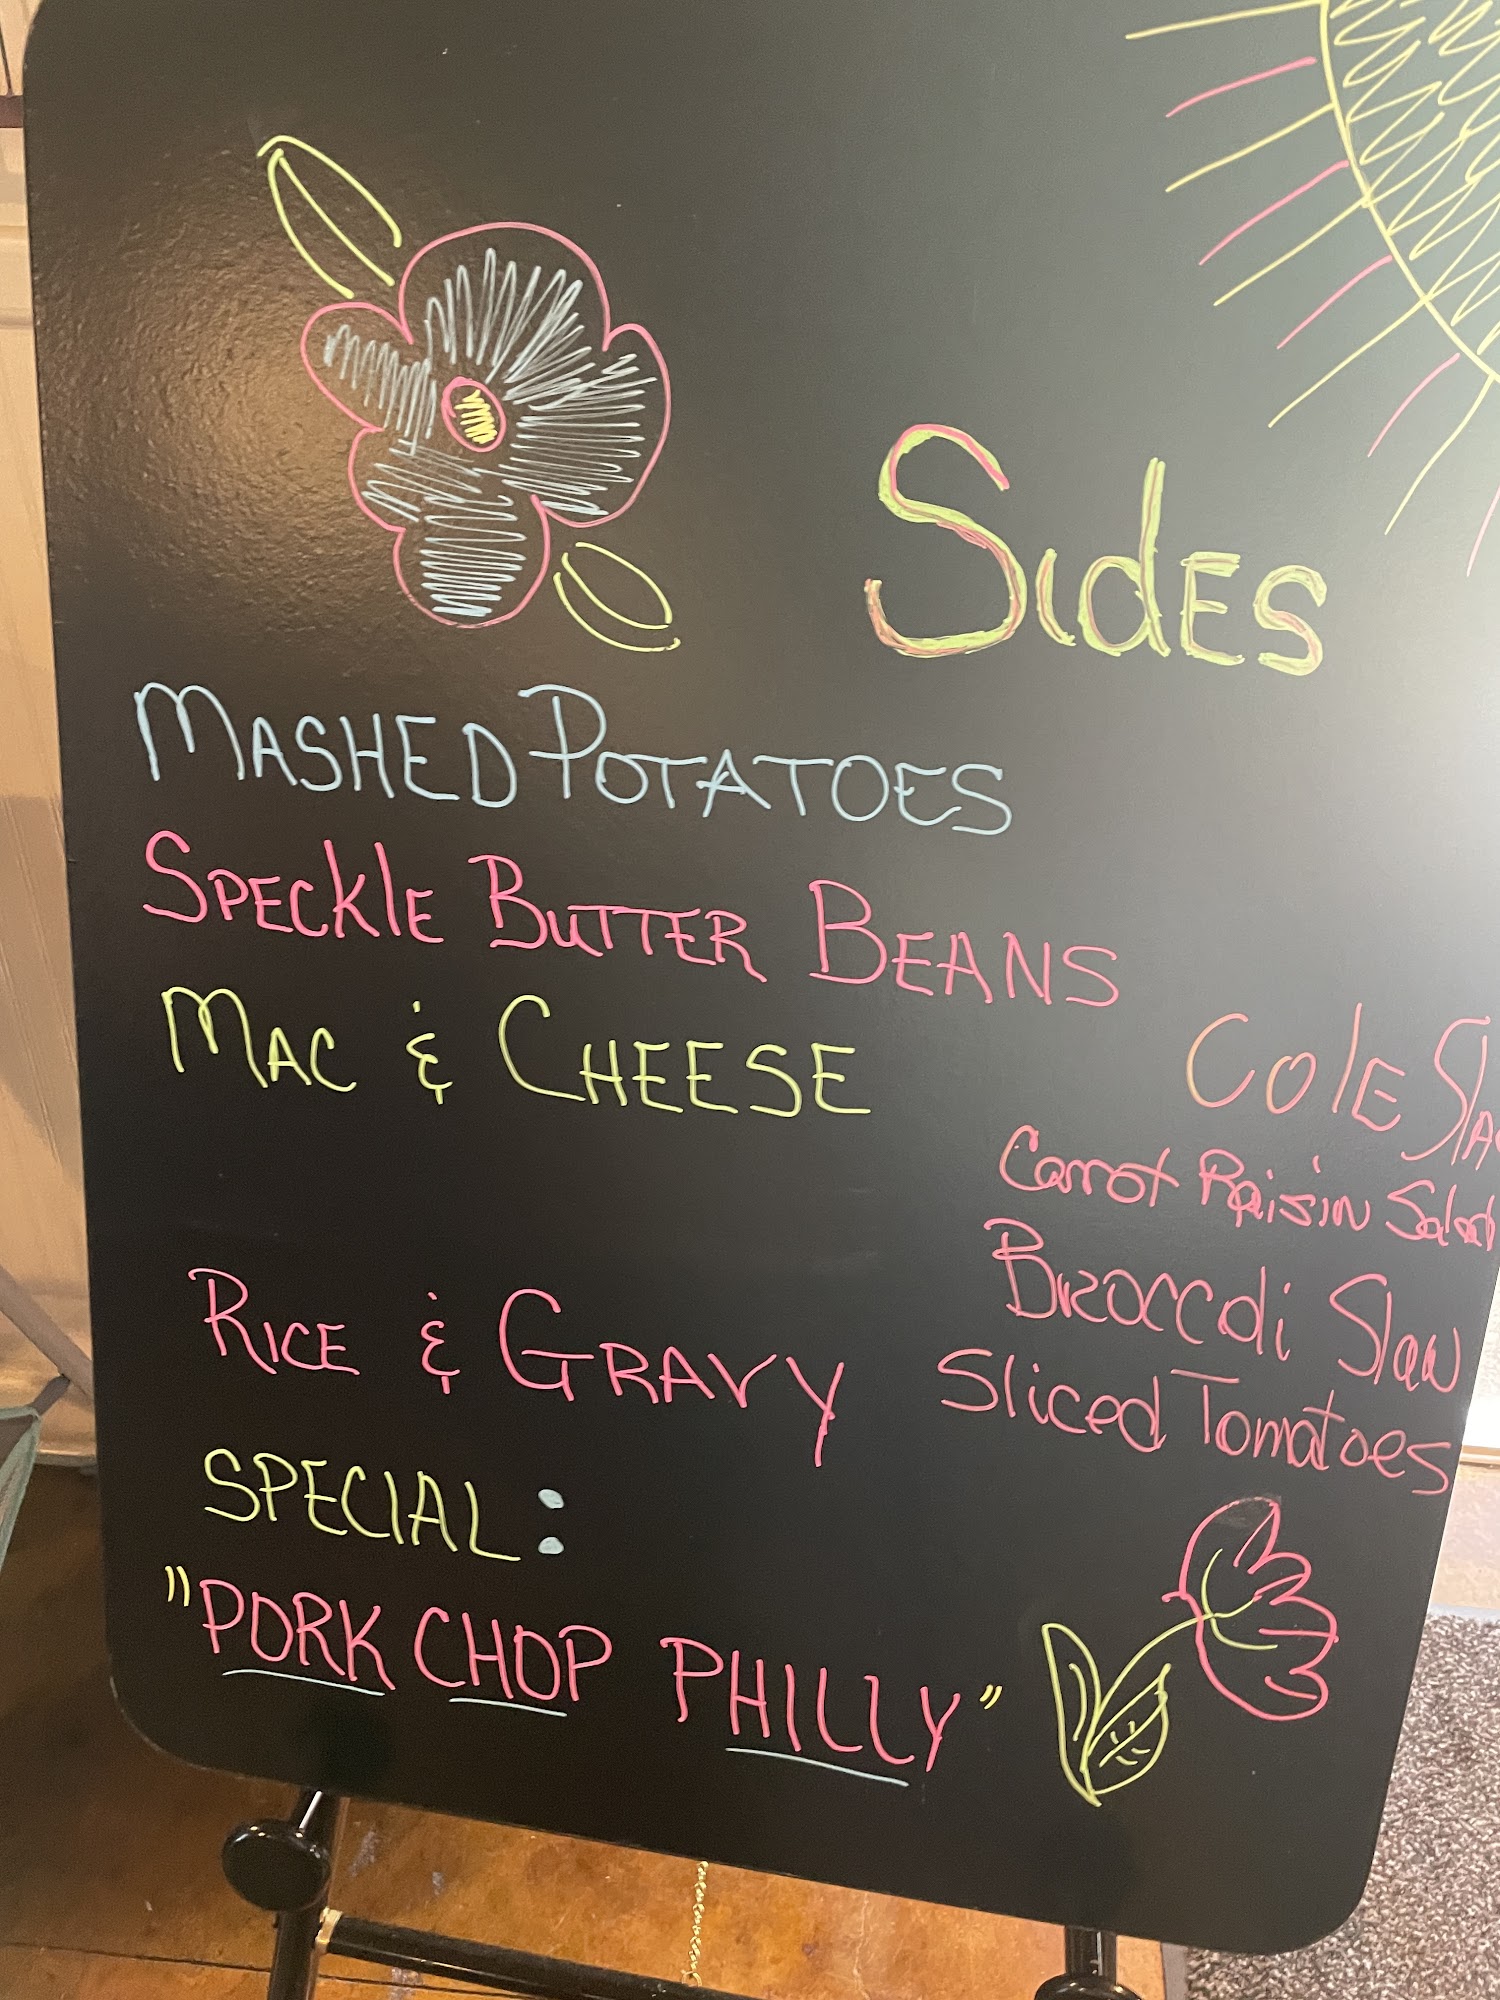 Sides
MASHED POTATOES
SPECKLE BUTTER BEANS
MAC & CHEESE
Cole Sla
Carrot Raisin Salad
Broccoli Slaw
RICE & GRAVY
Sliced Tomatoes
SPECIAL:
"PORK CHOP PHILLY"